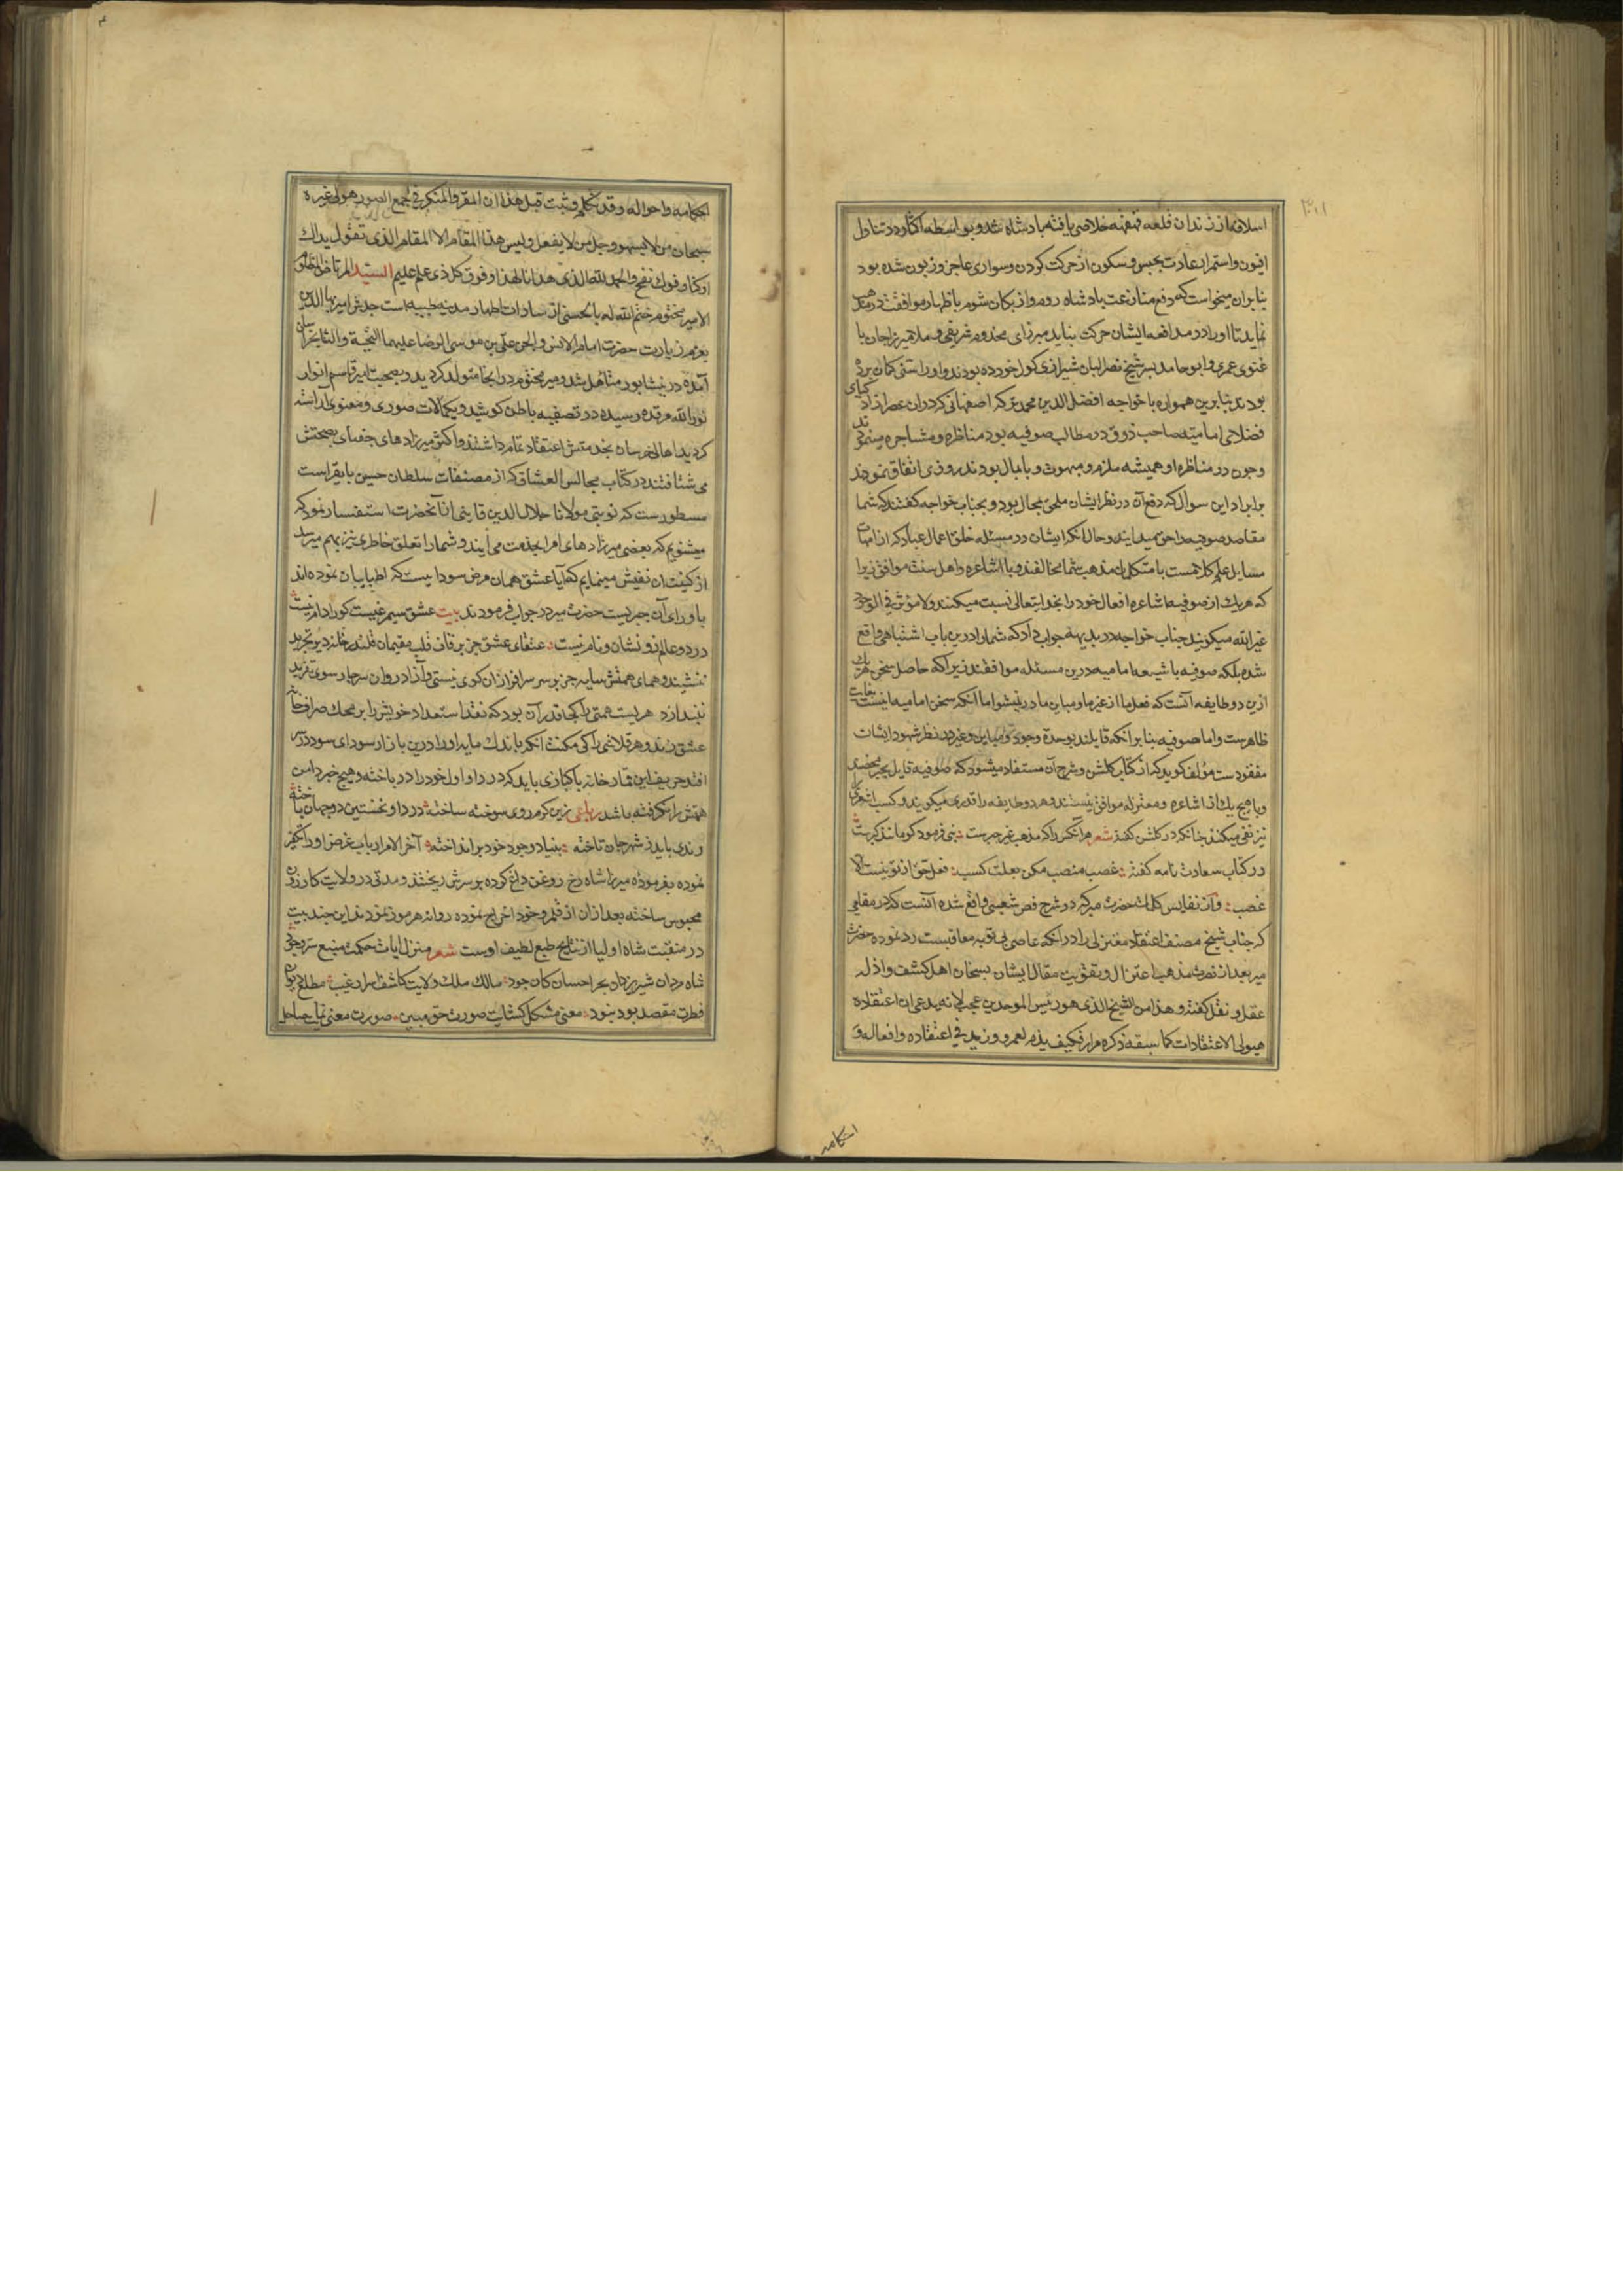 اسلاف از زندان قلعه قهقهه خلاصی یافته بادشاه شد و بواسطه اکثار در تناول
افیون و استمرار عادت بحبس و سکون از حرکت کردن و سواری عاجز و زبون شده بود
بنابران میخواست که دفع منازعت بادشاه روم و ازبکان شوم باظهار موافقت در مذهب
نماید تا او را در مدافعه ایشان حرکت نباید میرزای مخدوم شریفی و ملا میرزا جان با
غنوی عمری و ابو حامد پسر شیخ نصر البیان شیرازی کول خورده بودند و او را سنی کمان برده
بودند بنابرین همواره با خواجه افضل الدین محمد ترکه اصفهانی که دران عصر از اذکیای
فضلای امامیه صاحب ذوق در مطالب صوفیه بود مناظره و مشاجره مینمودند
و چون در مناظره او همیشه ملزم و مبهوت و پایمال بودند روزی اتفاق نمودند
بر ایراد این سوال که دفع آن در نظر ایشان ملحق بمحال بود و بجناب خواجه کفتند که شما
مقاصد صوفیه را حق میدانید و حال آنکه ایشان در مسئله خلق اعمال عباد که از امهات
مسایل علم کلامست با متکلمان مذهب شما مخالفند و با اشاعره و اهل سنت موافق زیرا
که هریک از صوفیه و اشاعره افعال خود را بخدایتعالی نسبت میکنند و لا مؤثر فی الوجود
غیر الله میکویند جناب خواجه در بدیهه جواب داد که شما را درین باب اشتباهی واقع
شده بلکه صوفیه با شیعه امامیه درین مسئله موافقند زیرا که حاصل سخن هریک
ازین دو طایفه آنست که فعل ما از غیر ما و مباین ما در نیشود اما آنکه سخن امامیه اینست بغایت
ظاهرست و اما صوفیه بنابر آنکه قایلند بوحدة وجود و مباین و غیر در نظر شهود ایشان
مفقودست مؤلف کوید که از کتاب کلشن و شرح آن مستفاد میشود که صوفیه قایل بجبر محضند
و با هیچ یک از اشاعره و معتزله موافق نیستند و هر دو طایفه را قدری میکویند و کسب اشعری را
نیز نفی میکنند چنانکه در کلشن کفته شعر هر آنکس را که مذهب غیر جبرست نبی فرمود کو مانند کبرست
در کتاب سعادت نامه کفته غصب منصب مکن بعلت کسب فعل حق از تو نیست الا
غصب و از نفایس کلمات حضرت میر که در شرح فص شعیبی واقع شده آنست که در مقامی
که جناب شیخ مصنف اعتقاد معتزلی را در آنکه عاصی بی توبه معاقبست رد نموده حضرت
میر بعد از نصرت مذهب اعتزال و تقویت مقال ایشان بسخنان اهل کشف و ادله
عقل و نقل کفته و هذا من الشیخ الذی هو رئیس الموحدین عجب لانه یدعی ان اعتقاده
هیولی الاعتقادات کما سبق ذکره مرارا فکیف یذم لعمرو و زید فی اعتقاده و افعاله و
احکامه
احکامه و احواله و قد تکلم و ثبت قبل هذا ان المقر و المنکر فی جمیع الصور هو لا غیره
سبحان من لا یسهو و جل من لا یغفل و لیس هذا المقام الا المقام الذی تقول یداک
اوکتا و فوک نفخ و الحمد لله الذی هدانا لهذا و فوق کل ذی علم علیم السید المرتاض المظلوم
الامیر مختوم ختم الله له بالحسنی از سادات اطهار مدینه طیبه است جدش امیر بهاء الدین
بعزم زیارت حضرت امام الانس و الجن علی بن موسی الرضا علیهما التحیة و الثنا بخراسان
آمده در نیشابور متأهل شد و میر مختوم در انجا متولد کردید و بصحبت امیر قاسم انوار
نور الله مرقده رسیده در تصفیه باطن کوشید و بکمالات صوری و معنوی آراسته
کردید اهالی خراسان بخدمتش اعتقاد تمام داشتند و اکثر میرزادهای جغتای بصحبتش
می شتافتند در کتاب مجالس العشاق که از مصنفات سلطان حسین بایقراست
مسطورست که نوبتی مولانا جلال الدین قاینی از آنحضرت استفسار نمود که
میشنویم که بعضی میرزادهای امرا بخدمت می آیند و شما را تعلق خاطری نیز بهم میرسد
از کیفیت ان تفتیش مینمایم که آیا عشق همان مرض سوداییست که اطبا بیان نموده اند
یا ورای آن چیزیست حضرت میر در جواب فرمودند بیت عشق سیمرغیست کو را دام نیست
در دو عالم زو نشان و نام نیست عنقای عشق جز بر قاف قلب مقیمان قلندر خانه دیر تجرید
ننشیند و همای همتش سایه جز بر سر سرافرازان کوی نیستی و آزاد روان سر چارسوی تفرید
نیندازد هر پست همتی را کجا قدر آن بود که نقد استعداد خویش را بر محک صراف
عشق زند و هر قلاشی را کی مکنت آنکه باندک مایه او را درین بازار سودای سود در سر
افتد حریف این قمارخانه پاکبازی باید که در داو اول خود را در باخته و هیچ خبر دامن
همتش را نکرفته باشد رباعی زین کرم روی سوخته ساخته در داو نخستین دو جهان باخته
رندی باید ز شهر جان تاخته بنیاد وجود خود بر انداخته آخر الامر ارباب غرض او را تکفیر
نموده بفرموده میرزا شاه رخ روغن داغ کرده بر سرش ریختند و مدتی در ولایت کازرون
محبوس ساخته بعد ازان از قلمرو خود اخراج نموده روانه هرموز نمودند این چند بیت
در منقبت شاه اولیا از نتایج طبع لطیف اوست شعر منزل ایات حکمت منبع سر وجود
شاه مردان شیر یزدان بحر احسان کان جود مالک ملک ولایت کاشف اسرار غیب مطلع دیوان
فطرت مقصد بود نبود معنی مشکل کشایت صورت حق مبین صورت معنی نمایت حاصل